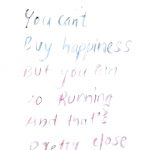 You can't
Buy happiness
But you can
Go Running
And that's
Pretty close